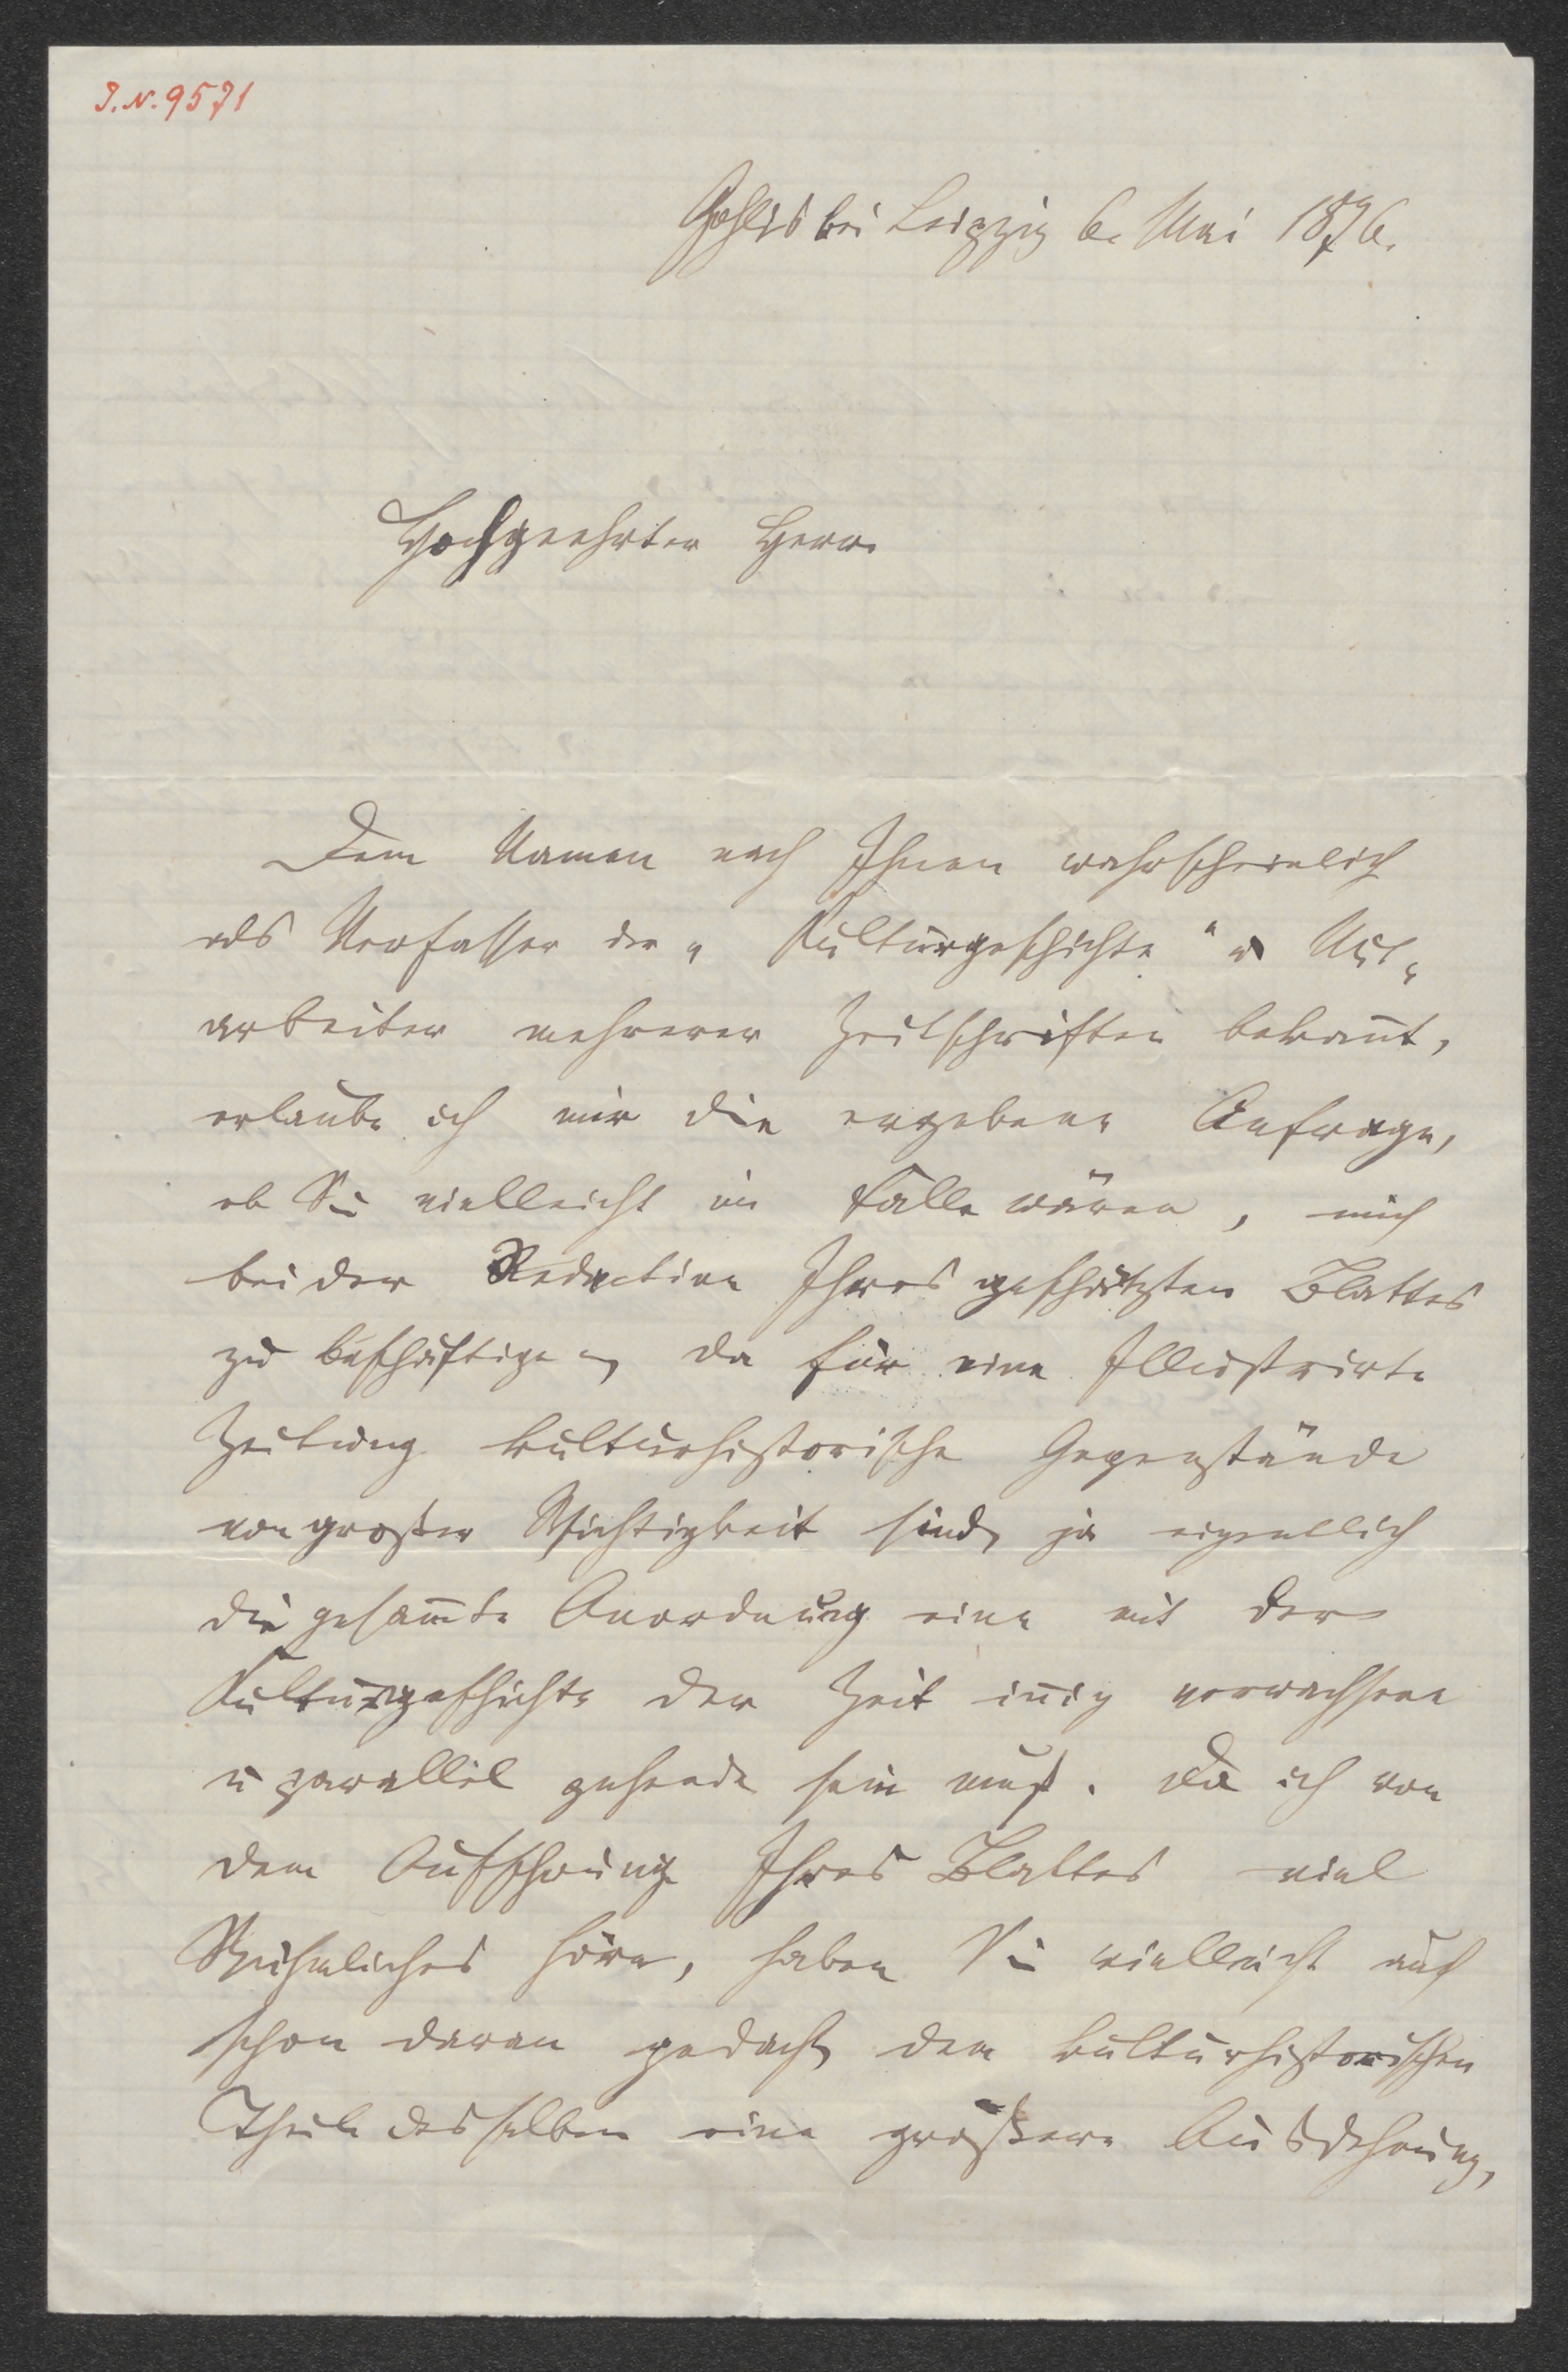 I.N. 9571
Gohlis bei Leipzig 6. Mai 1876.
Hochgeehrter Herr.
Dem Namen nach Ihnen wahrscheinlich
als Verfasser der „Kulturgeschichte“ u Mit-
arbeiter mehrerer Zeitschriften bekan̄t,
erlaube ich mir die ergebene Anfrage,
ob Sie vielleicht im Falle wären, mich
bei der Redaction Ihres geschätzten Blattes
zu beschäftigen, da für eine Illustrirte
Zeitung kulturhistorische Gegenstände
von großer Wichtigkeit sind, ja eigentlich
die gesam̄te Anordnung eine mit der
Kulturgeschichte der Zeit in̄ig verwachsene
u parallel gehende sein muß. Da ich von
dem Aufschwung Ihres Blattes viel
Rühmliches höre, haben Sie vielleicht auch
schon daran gedacht, dem kulturhistorischen
Theile desselben eine größere Ausdehnung,